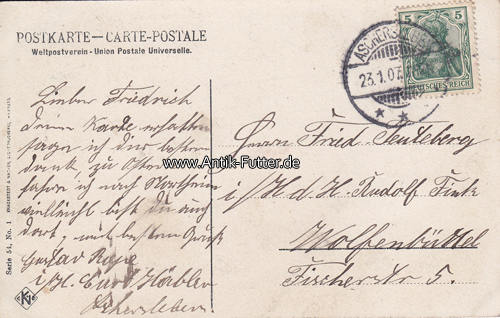 POSTKARTE — CARTE-POSTALE
Weltpostverein - Union Postale Universelle.
5 5
DEUTSCHES REICH
ASCHERSLEBEN
23.1.07
Lieber Friedrich
deine Karte erhalten
sage ich der besten
dank zu Ostern
fahre ich nach Northeim
vielleicht bist du auch
dort, mit besten Gruß
Gustav
i/H. Curt
Aschersleben
Herrn Fried.
i/H d. H. Rudolf Fink
Wolfenbüttel
Fischerstr 5.
www.Antik-Futter.de
Serie 54, No. 1